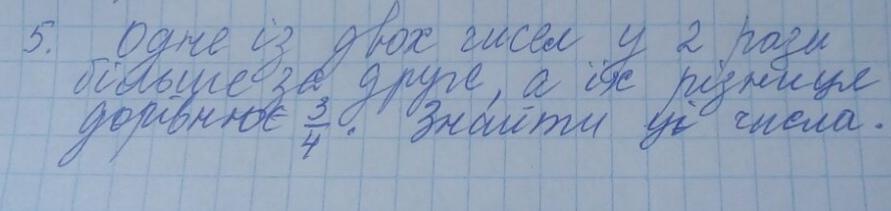 5. Одне із двох чисел у 2 рази
більше за друге, а їх різниця
дорівнює 3/4. Знайти ці числа.